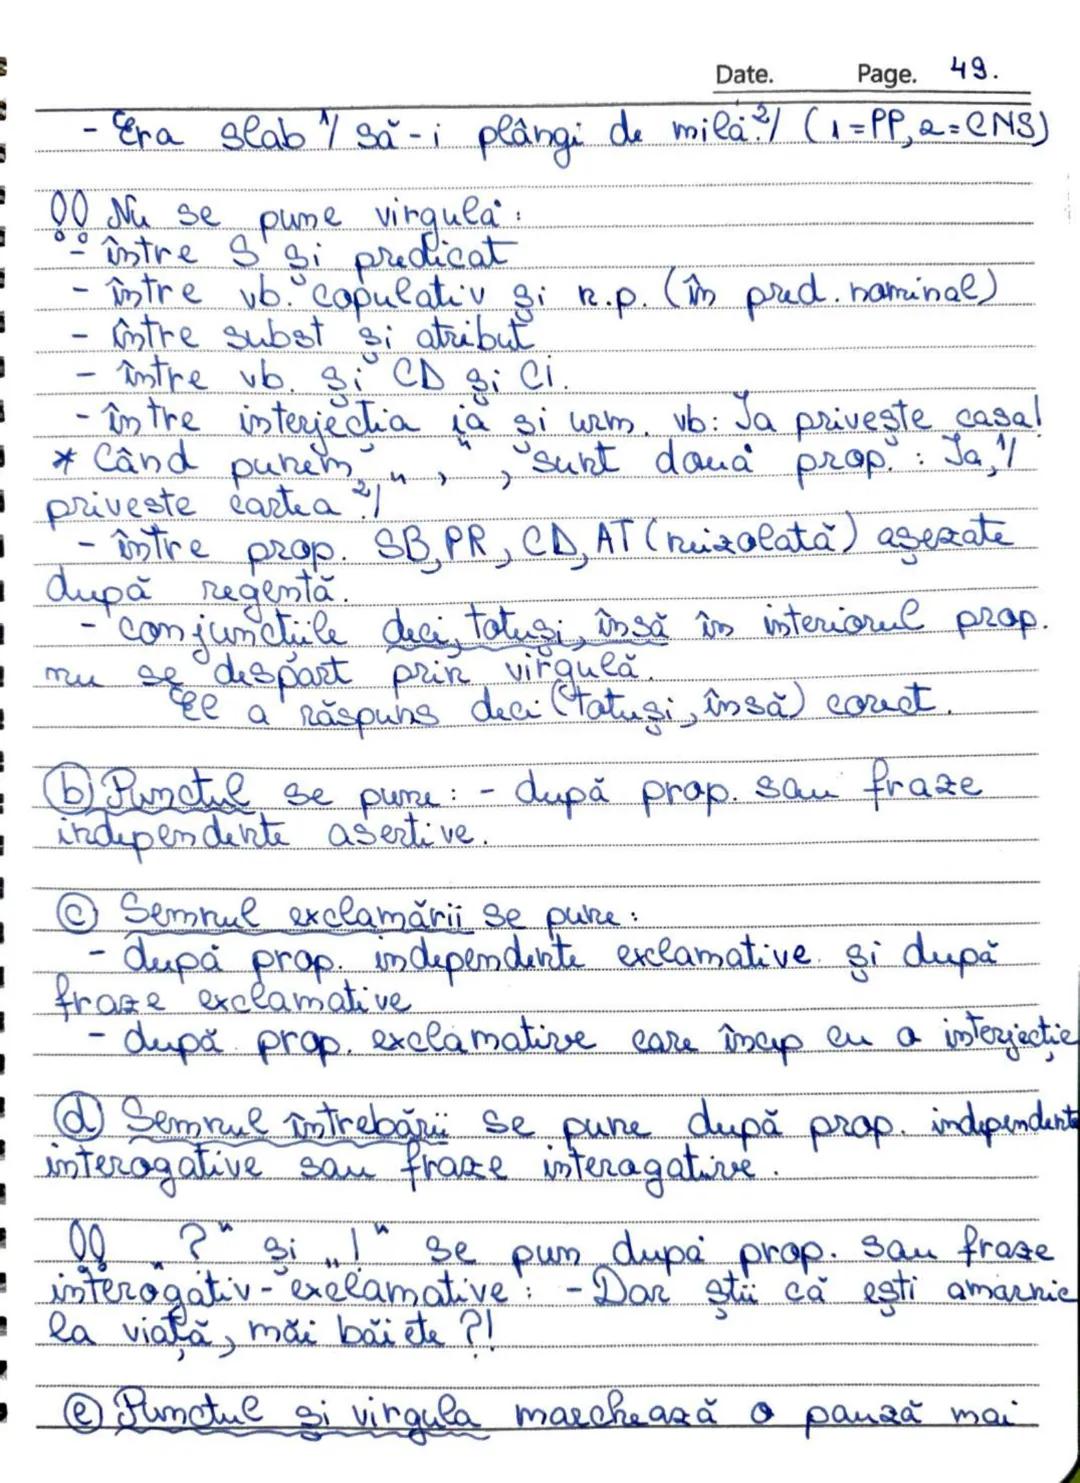 Date. Page. 49.
- Era slab 1/ să-i plângi de milă. 2/ (1=PP, 2=CNS)
!! Nu se pune virgulă:
- între S și predicat
- între vb. copulativ și n.p. (în pred. nominal)
- între subst și atribut
- între vb. și CD și Ci.
- între interjecția ia și urm. vb: Ia privește casa!
* Când punem „ , ", sunt două prop. : Ia, 1/
privește cartea 2/
- între prop. SB, PR, CD, AT (neizolată) așezate
după regentă.
- conjuncțiile deci, totuși, însă în interiorul prop.
nu se despart prin virgulă.
El a răspuns deci (totuși, însă) corect.
b) Punctul se pune: - după prop. sau fraze
independente asertive.
c) Semnul exclamării se pune:
- după prop. independente exclamative și după
fraze exclamative
- după prop. exclamative care încep cu o interjecție
d) Semnul întrebării se pune după prop. independente
interogative sau fraze interogative.
!! „?" și „!" se pun după prop. sau fraze
interogativ-exclamative: - Dar știi că ești amarnic
la viață, măi băiete ?!
e) Punctul și virgula marchează o pauză mai